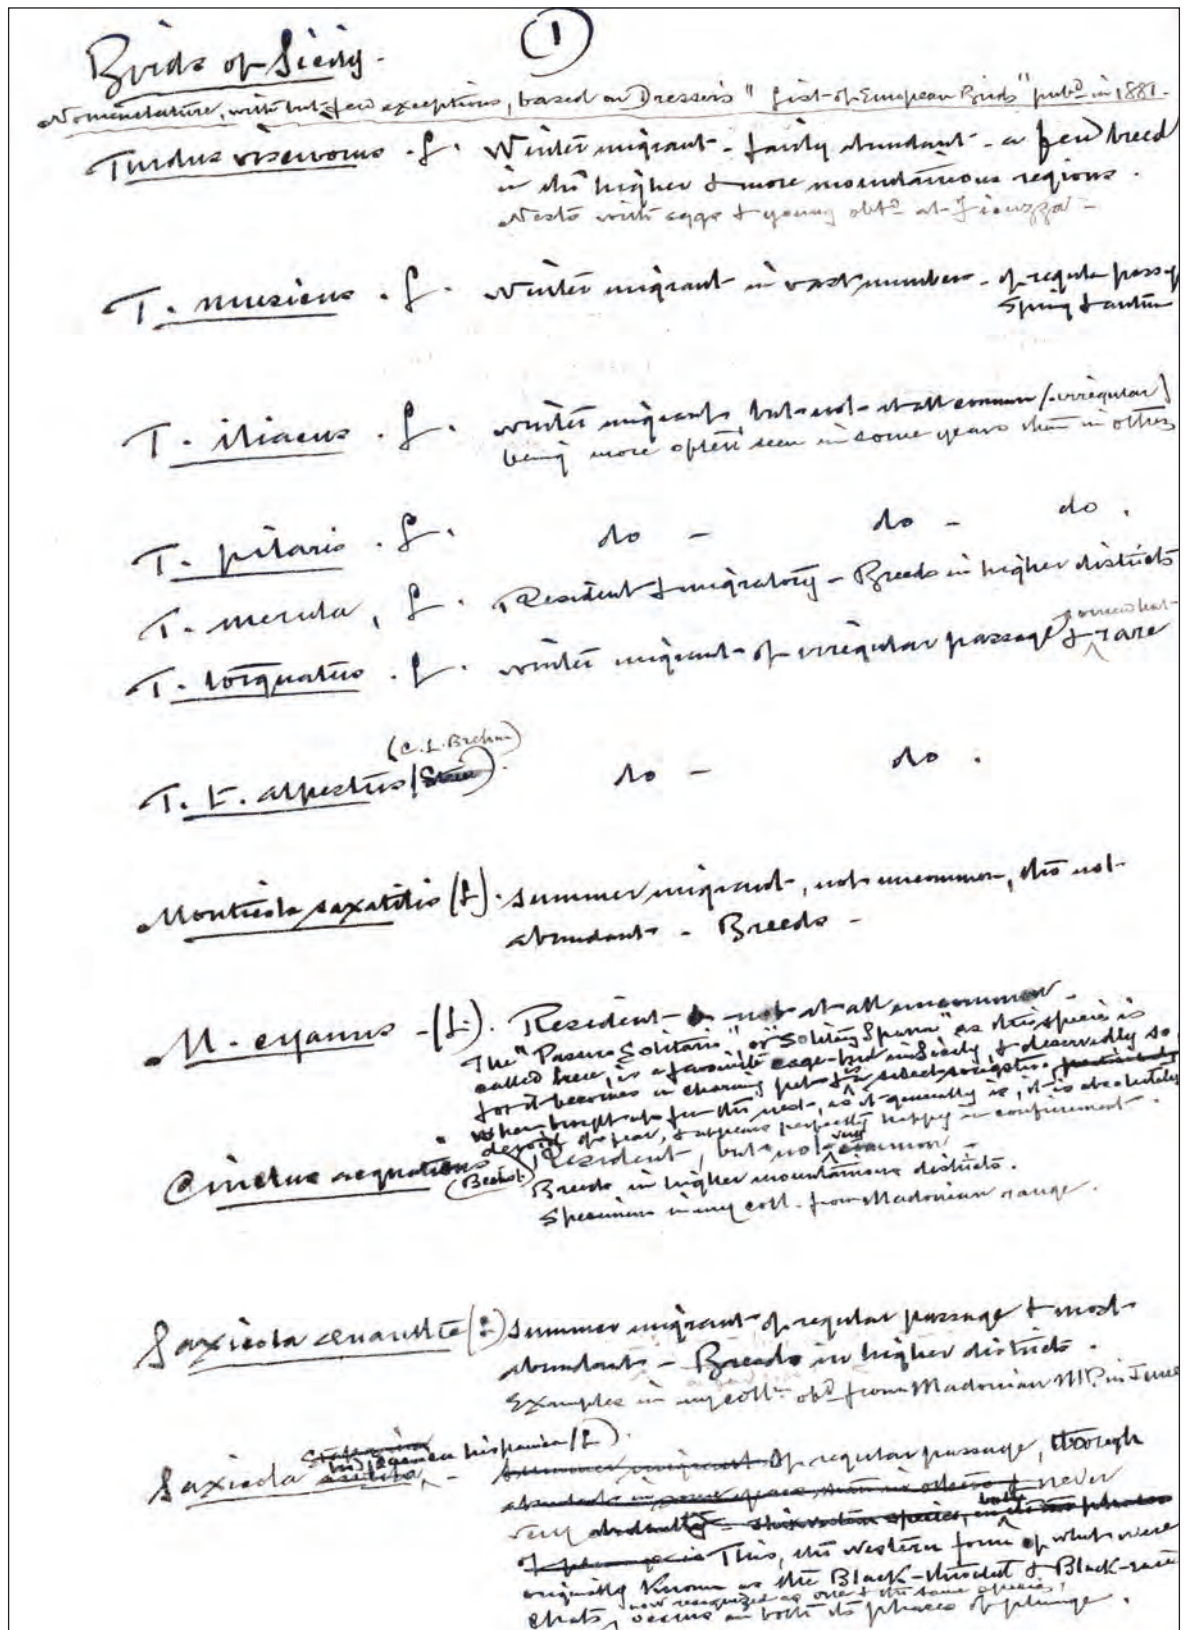 Birds of Sicily.
1
Nomenclature, with but few exceptions, based on Dresser's "List of European Birds" pubd in 1881.
Turdus viscivorus. L. Winter migrant - fairly abundant - a few breed
in the higher & more mountainous regions.
Nests with eggs & young obtd at Ficuzza -
T. musicus. L. Winter migrant in vast numbers - of regular passag
Spring & autum
T. iliacus. L. winter migrant, but not at all common (irregular)
being more often seen in some years than in others
T. pilaris. L. do - do - do.
T. merula, L. Resident & migratory - Breeds in higher districts
somewhat
T. torquatus. L. winter migrant of irregular passage & rare
(C.L. Brehm)
T. t. alpestris do - do.
Monticola saxatilis (L). Summer migrant, not uncommon, tho not
abundant - Breeds -
M. cyanus - (L). Resident - not at all uncommon -
The "Passero Solitario" or "Solitary Sparrow" as this species is
called here, is a favourite cage-bird in Sicily, & deservedly so,
for it becomes a charming pet & is
When brought up from the nest, as it generally is, it is absolutely
devoid of fear, & appears perfectly happy in confinement.
very
Cinclus aquaticus Resident, but not common -
(Bechst.) Breeds in higher mountainous districts.
Specimens in my coll. from Madonian range.
Saxicola œnanthe (L) Summer migrant of regular passage & most
abundant - Breeds in higher districts.
Examples in my colln obd from Madonian Mts in June
Stapazina
hispanica (L).
Saxicola Summer migrant of regular passage, though
abundant in some years than in others & never
very abundant - this species, in its two phases
both
of plumage is This, the western form of what were
originally known as the Black-throated & Black-eared
now recognized as one & the same species,
Chats, occurs in both its phases of plumage.